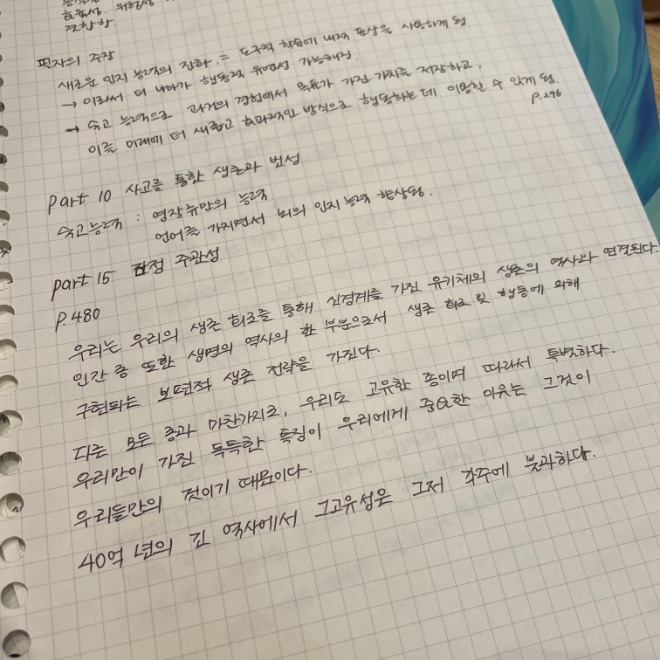 효율성. 위험성
경향함
필자의 주장
새로운 인지 능력의 진화. = 도구적 학습에 내적 표상을 사용하게 됨.
→ 이로써 더 나아가 행동적 유연성 가능해짐
→ 숙고 능력으로 과거의 경험에서 목표가 가진 가치를 저장하고,
이를 미래에 더 새롭고 효과적인 방식으로 행동하는 데 이용할 수 있게 됨.
p.296
part 10 사고를 통한 생존과 번성
숙고능력 : 영장류만의 능력
언어를 가지면서 뇌의 인지능력 향상됨.
part 15 감정 주관성
p.480
우리는 우리의 생존 회로를 통해 신경계를 가진 유기체의 생존의 역사와 연결된다.
인간 종 또한 생명의 역사의 한 부분으로서 생존 회로 및 행동에 의해
구현되는 보편적 생존 전략을 가진다.
다른 모든 종과 마찬가지로, 우리도 고유한 종이며 따라서 특별하다.
우리만이 가진 독특한 특징이 우리에게 중요한 이유는 그것이
우리들만의 것이기 때문이다.
40억 년의 긴 역사에서 그 고유성은 그저 각주에 불과하다.